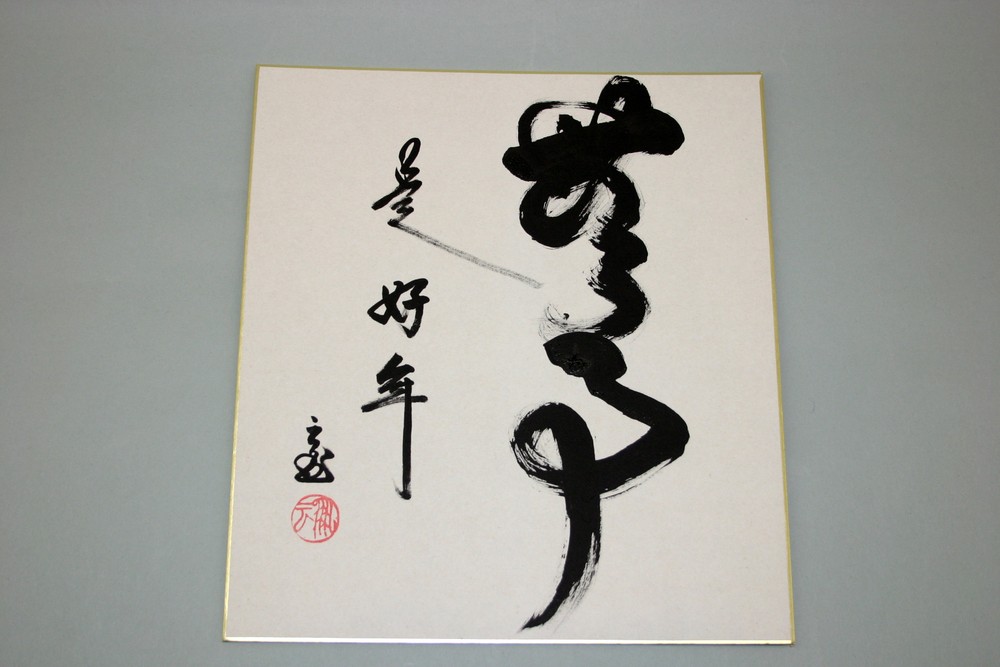 無事
是好年